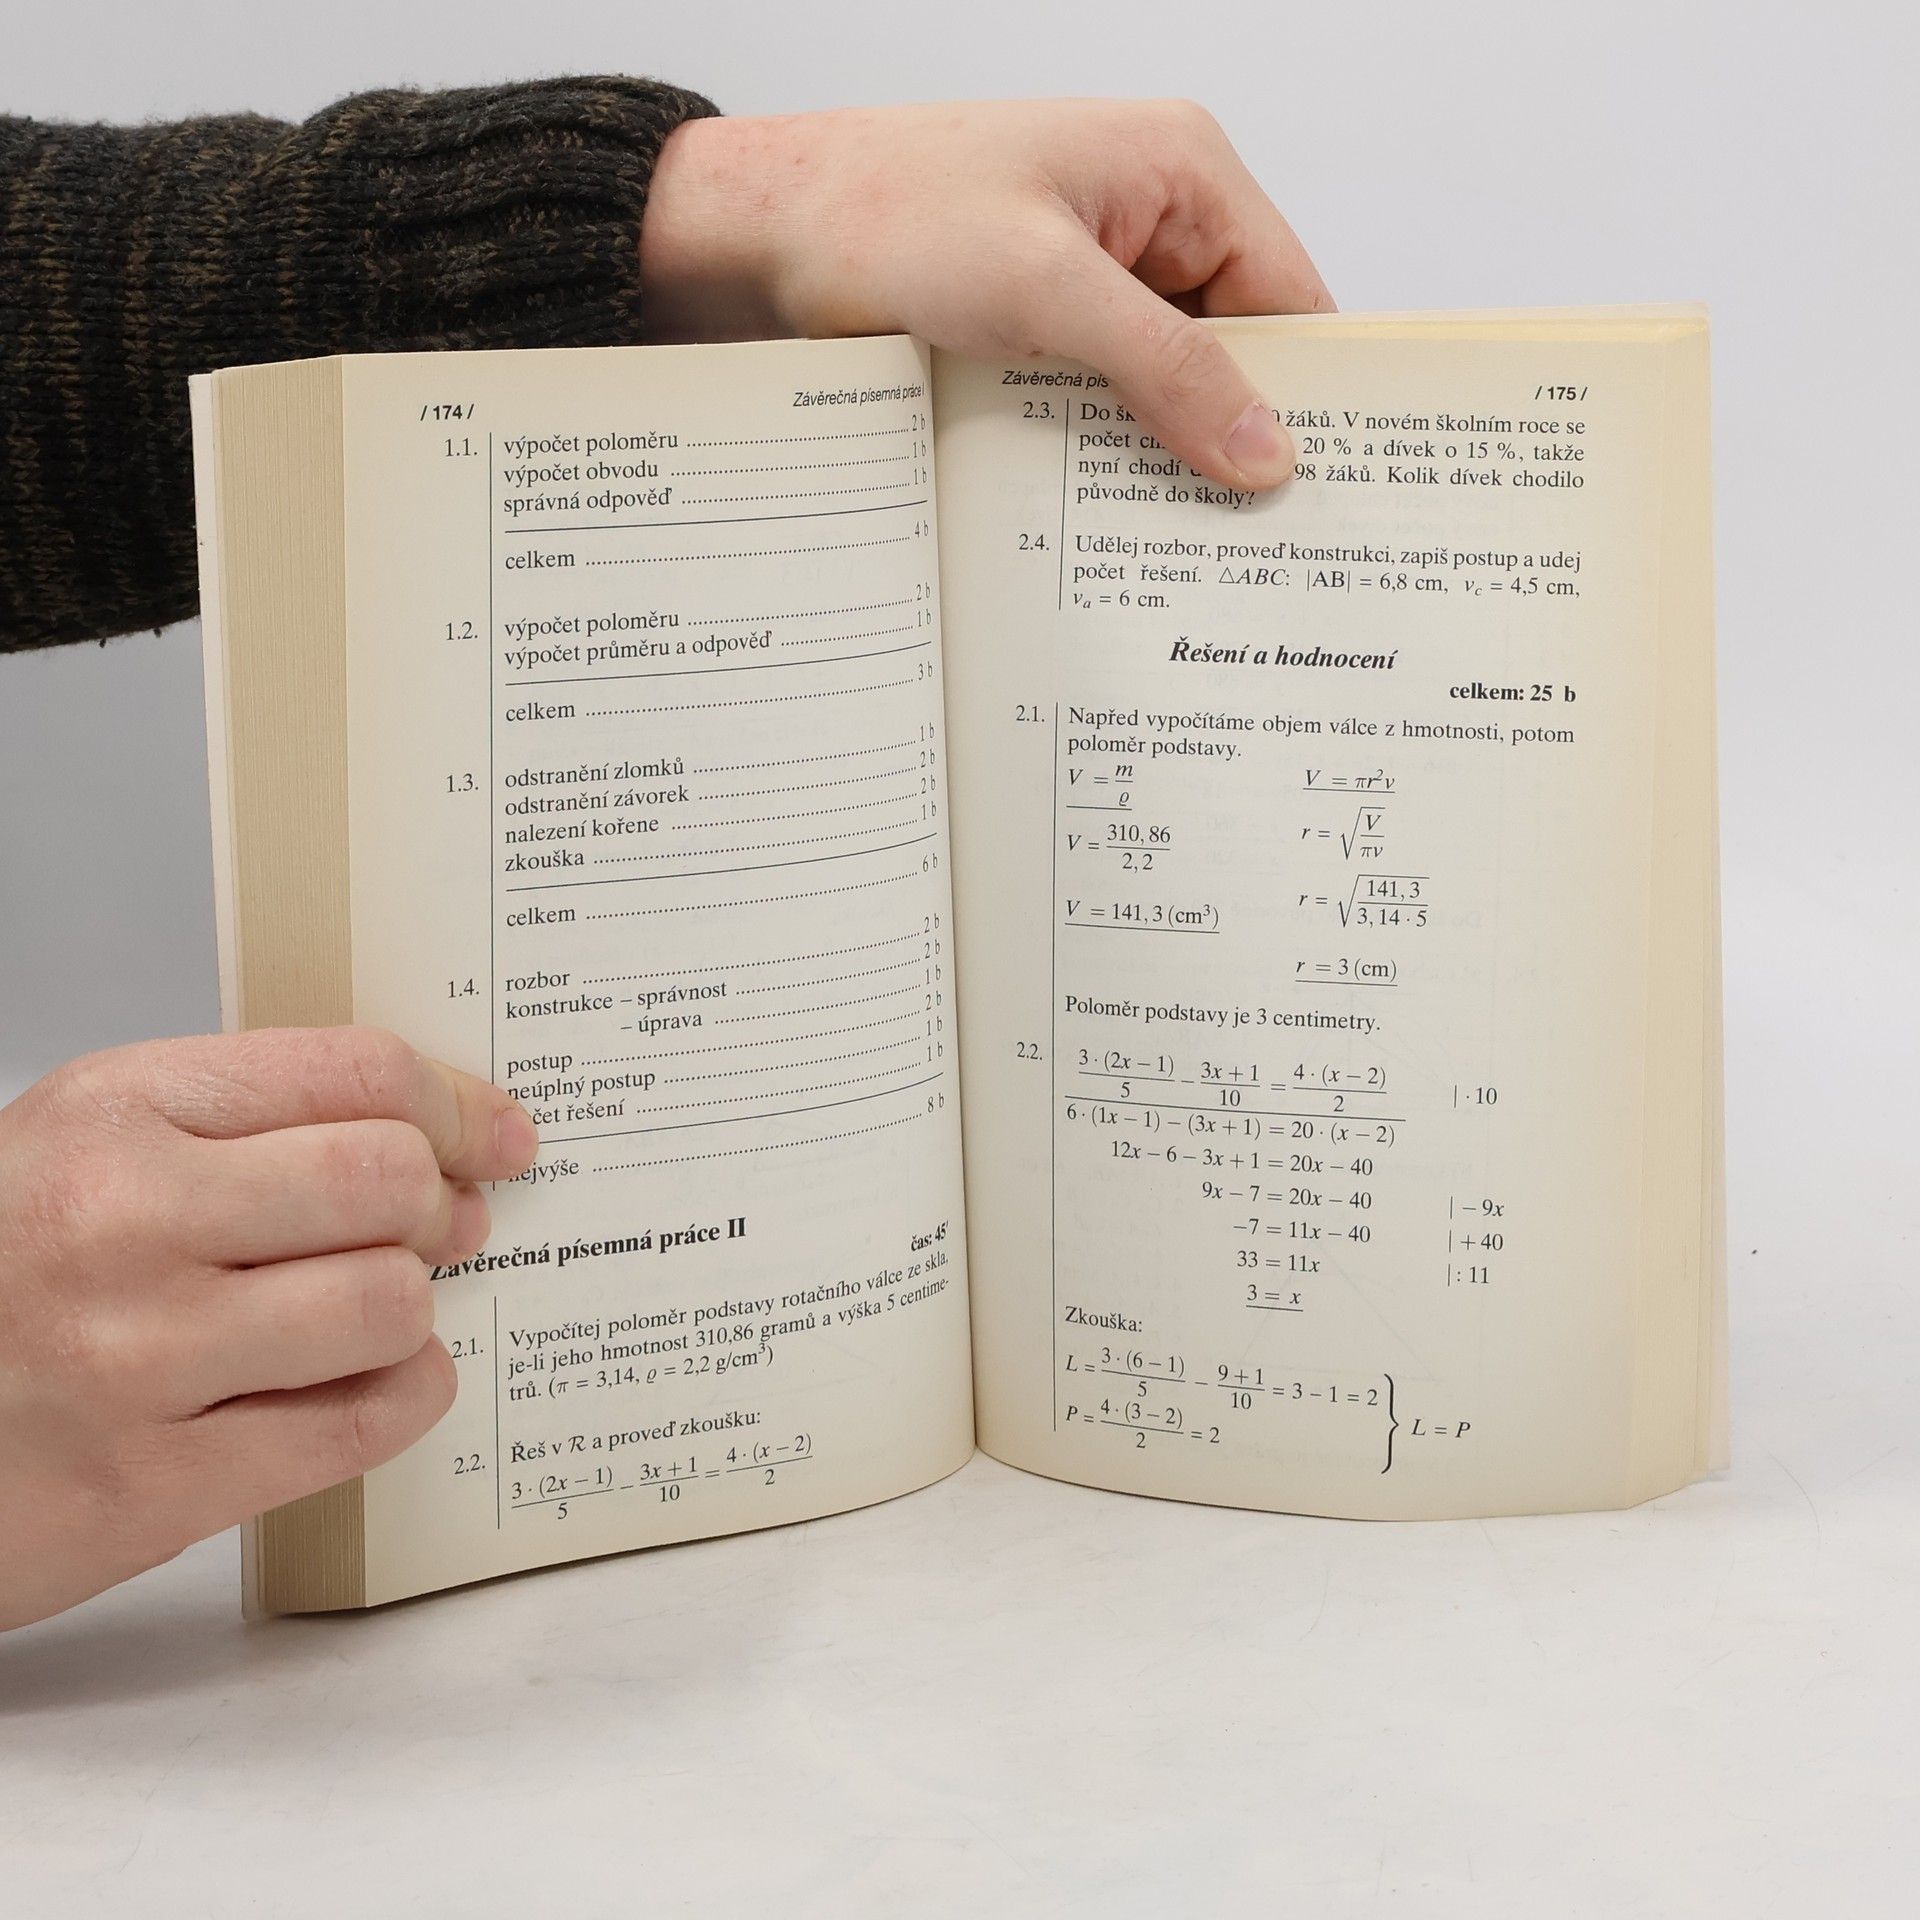 / 174 /
Závěrečná písemná práce I
1.1. výpočet poloměru ........ 2 b
výpočet obvodu ........ 1 b
správná odpověď ........ 1 b
celkem ........ 4 b
1.2. výpočet poloměru ........ 2 b
výpočet průměru a odpověď ........ 1 b
celkem ........ 3 b
1.3. odstranění zlomků ........ 1 b
odstranění závorek ........ 2 b
nalezení kořene ........ 2 b
zkouška ........ 1 b
celkem ........ 6 b
1.4. rozbor ........ 2 b
konstrukce – správnost ........ 2 b
– úprava ........ 1 b
postup ........ 2 b
neúplný postup ........ 1 b
řešení ........ 1 b
........ 8 b
Závěrečná písemná práce II
čas: 45'
2.1. Vypočítej poloměr podstavy rotačního válce ze skla,
je-li jeho hmotnost 310,86 gramů a výška 5 centime-
trů. (π = 3,14, ϱ = 2,2 g/cm³)
2.2. Řeš v R a proveď zkoušku:
3 · (2x − 1)/5 − 3x + 1/10 = 4 · (x − 2)/2
Závěrečná
/ 175 /
2.3. Do žáků. V novém školním roce se
počet 20 % a dívek o 15 %, takže
nyní chodí 98 žáků. Kolik dívek chodilo
původně do školy?
2.4. Udělej rozbor, proveď konstrukci, zapiš postup a udej
počet řešení. △ABC: |AB| = 6,8 cm, v_c = 4,5 cm,
v_a = 6 cm.
Řešení a hodnocení
celkem: 25 b
2.1. Napřed vypočítáme objem válce z hmotnosti, potom
poloměr podstavy.
V = m/ϱ V = πr²v
V = 310,86/2,2 r = √(V/πv)
V = 141,3 (cm³) r = √(141,3/3,14 · 5)
r = 3 (cm)
Poloměr podstavy je 3 centimetry.
2.2. 3 · (2x − 1)/5 − 3x + 1/10 = 4 · (x − 2)/2 | · 10
6 · (1x − 1) − (3x + 1) = 20 · (x − 2)
12x − 6 − 3x + 1 = 20x − 40
9x − 7 = 20x − 40 | − 9x
−7 = 11x − 40 | + 40
33 = 11x | : 11
3 = x
Zkouška:
L = 3 · (6 − 1)/5 − 9 + 1/10 = 3 − 1 = 2
P = 4 · (3 − 2)/2 = 2 } L = P